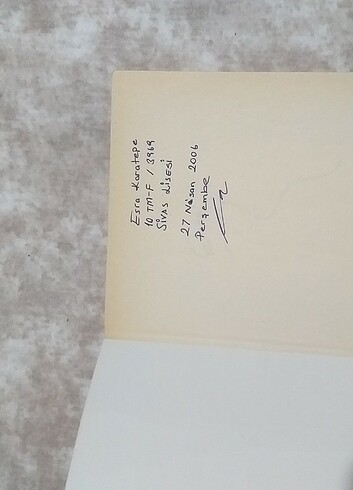 Esra Karatepe
10 TM-F / 3969
SİVAS LİSESİ
27 Nisan 2006
Perşembe